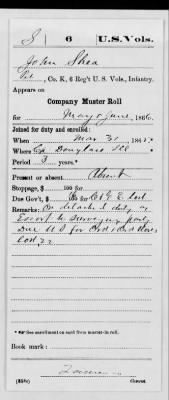 S 6 U.S. Vols.
John Shea
Pvt, Co. K, 6 Reg't U. S. Vols., Infantry.
Appears on
Company Muster Roll
for May & June, 1866.
Joined for duty and enrolled:
When Mar 31, 186
Where Cp Douglas Ill
Period 3 years.*
Present or absent Absent
Stoppage, $ 100 for
Due Gov't, $ 100 for C & G E lost
Remarks: On detached duty as
Escort to Surveying party
Due U S for Ord
*See enrollment on card from muster-in roll.
Book mark:
(358c) Copyist.